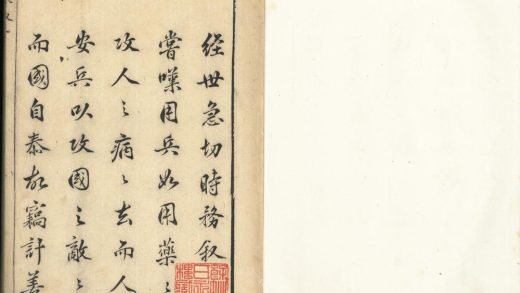 経世急切時務叙
嘗嘆用兵如用藥〻
攻人之病〻去而人
安兵以攻國之敵〻
而國自泰故竊計善